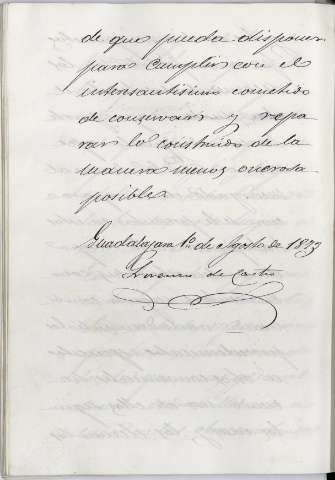 de que pueda disponer
para cumplir con el
interesantisimo cometido
de conservar y repa
rar lo construido de la
manera menos onerosa
posible.
Guadalajara 1º de Agosto de 1893
Florencio de Castro